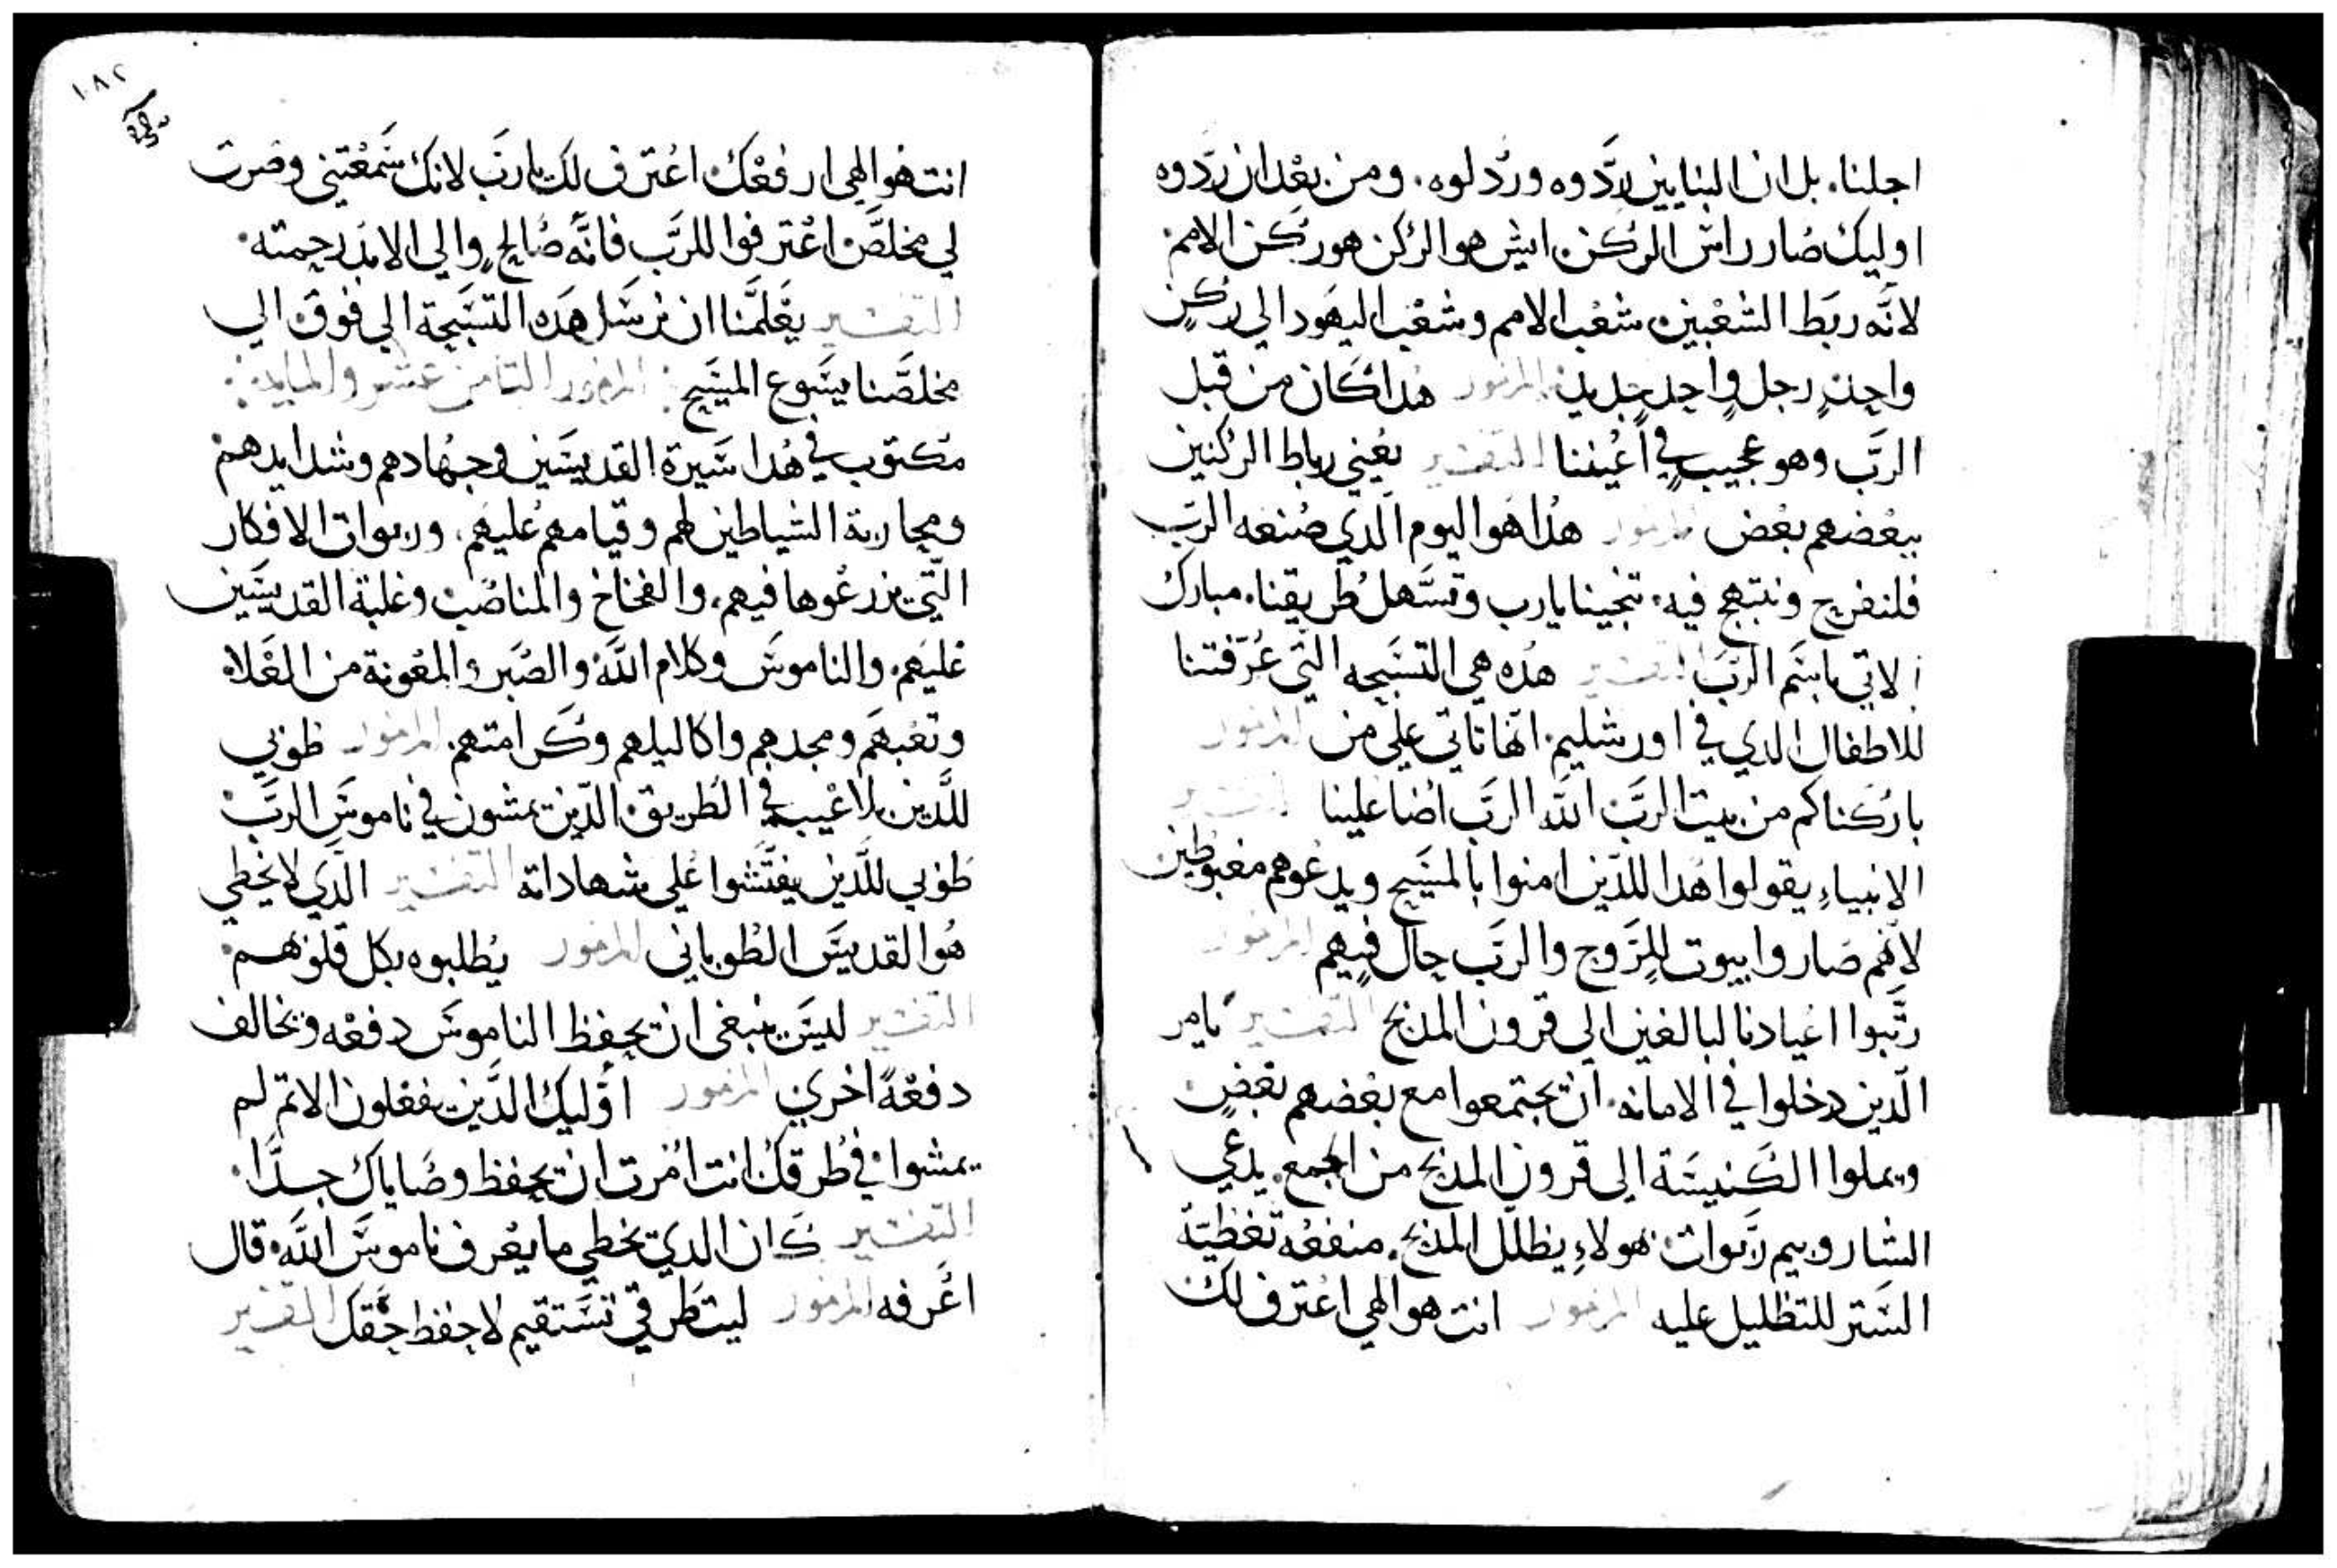 اجلنا. بل ان البنايين ردَّوه وردلوه. ومن بعْد ان ردَّوه
اوليك صار راس الركن ايش هو الركن هو ركن الامم
لانَّه ربَط الشعْبين شعْب الامم وشعْب اليهود الي ركنٍ
واحدٍ رجل واحد جديد المزمور هدا كان من قبل
الرَّب وهو عجيب في اعْيننا التفسير يعْني رباط الركنين
ببعْضهم بعْض المزمور هدا هو اليوم الَّدي صنعه الرب
فلنفرح ونبتهج فيه. تنجينا يارب وتسَّهل طريقنا. مبارك
الاتي باسَم الرَّب التفسير هده هي التسَبحه التي عُرّفتنا
للاطفال الدي في اورشليم. انها تاتي علي من المزمور
باركناكم من بيت الرَّب اللَّه الرَّب اضا علينا التفسير
الانبياء يقولوا هدا للدّين امنوا بالمسَيح ويدعُوهم مغبوطين
لانَّهم صَاروا بيوت للرَوح والرَب حال فيهم المزمور
رتَّبوا اعيادنا لبالغين الي قرون المدبح التفسير يامر
الَّدين دخلوا في الامانه. ان يجتمعوا مع بعْضهم بعْضٍ
ويملوا الكَنيسَة الي قرون المدبح من الجمع. يدعي
الشاروبيم ربَوات هولاءِ يظلل المدبح. منفعْه تغطيَة
السَتر للتظليل عليه المزمور انت هو الهي اعْترف لك
١٨٢
انت هو الهي ارفعْك اعْترف لك يارَب لانك سَمعْتني وصرت
لي مخلصَّ اعْترفوا للرَّب فانَّه صَالح والي الابد رحمته.
التفسير يعْلمَّنا ان نرسَل هَده التسَبحة الي فوق الي
مخلصَّنا يسَوع المسَيح : المزمور التامن عشر والمايه :
مكتوب في هُدا سَيرة القديسَين وجهُادهم وشدايدهم
ومحاربة الشياطين لهم وقيامهم عُليهَم. وربوات الافكار
الّتي يزرعُوها فيهم. والفخاخ والمناصَب وغلبة القديسَين
عليهَم. والناموسَ وكلام اللَّه والصَبر والمعْونة من العَلاء
وتعْبهَم ومجدهم واكاليلهم وكرامتهم المزمور طوبي
للدَّين بلا عْيب في الطَريق الدّين يمشون في ناموسَ الرَّب
طوبي للدَّين يفتّشوا عُلي شهاداته التفسير الَّدي لا يخطي
هُوا القديسَ الطوباني المزمور يُطلبوه بكل قلوبهم.
التفسير ليسَ ينبغي ان يحفظ الناموسَ دفعْه ويخالف
دفعْةً اخري المزمور اوّليك الدَّين يفعْلون الاتم لم
يمشوا في طُرقك انت امُرت ان تحفظ وصَاياك جدَّا.
التفسير كان الدي يخطي ما يعْرف ناموسَ اللَّه قال
اعَرفه المزمور ليت طَرقي تسَتقيم لاحفظ حَقك التفسير